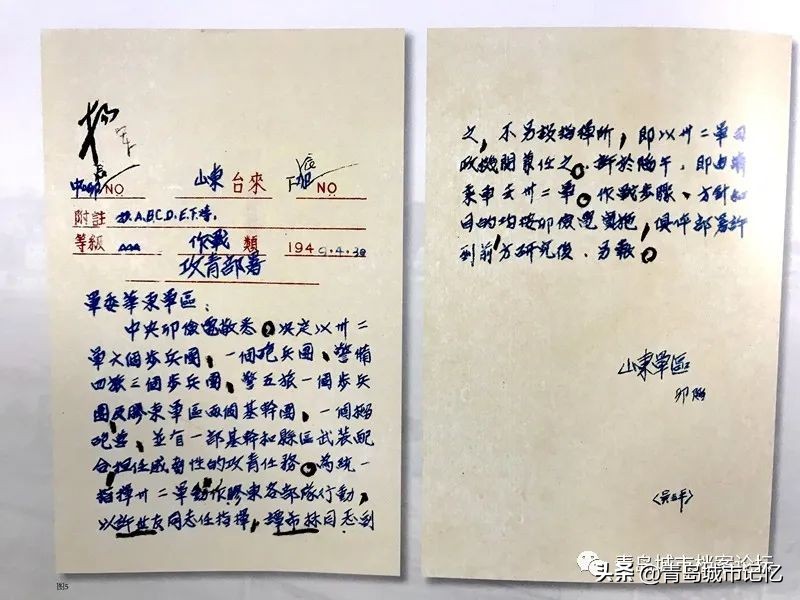 中 NO 山東台來 下 NO
附註 A.B.C.D.E.F.等.
等級 AAA 作戰類 1949.4.30
攻青部署
軍委華東軍區：
中央卯儉電敬悉。決定以卅二
軍六個步兵團、一個砲兵團、警備
四旅三個步兵團、警五旅一個步兵
團及膠東軍區兩個基幹團、一個榴
砲營，並有一部基幹和縣區武装配
合担任威脅性的攻青任務。為統一
指揮卅二軍動作膠東各部隊行動，
以許世友同志任指揮，譚希林同志副
之，不另設指揮所，即以卅二軍司
政機關兼任之。許於陽午，即由濟
東車去卅二軍。作戰步驟、方針和
目的均按卯儉電實施，俱体部署許
到前方研究後，另報。
山東軍區
卯
〈吴平〉
青岛城市档案论坛
头条@青岛城市记忆